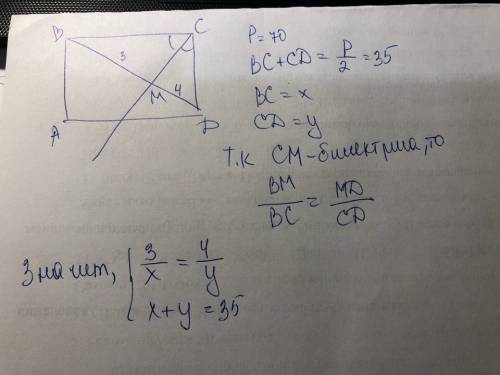 B C
3
4
M
A D
P = 70
BC + CD = P/2 = 35
BC = x
CD = y
т.к CM - биссектриса, то
BM/BC = MD/CD
Значит, { 3/x = 4/y
x + y = 35